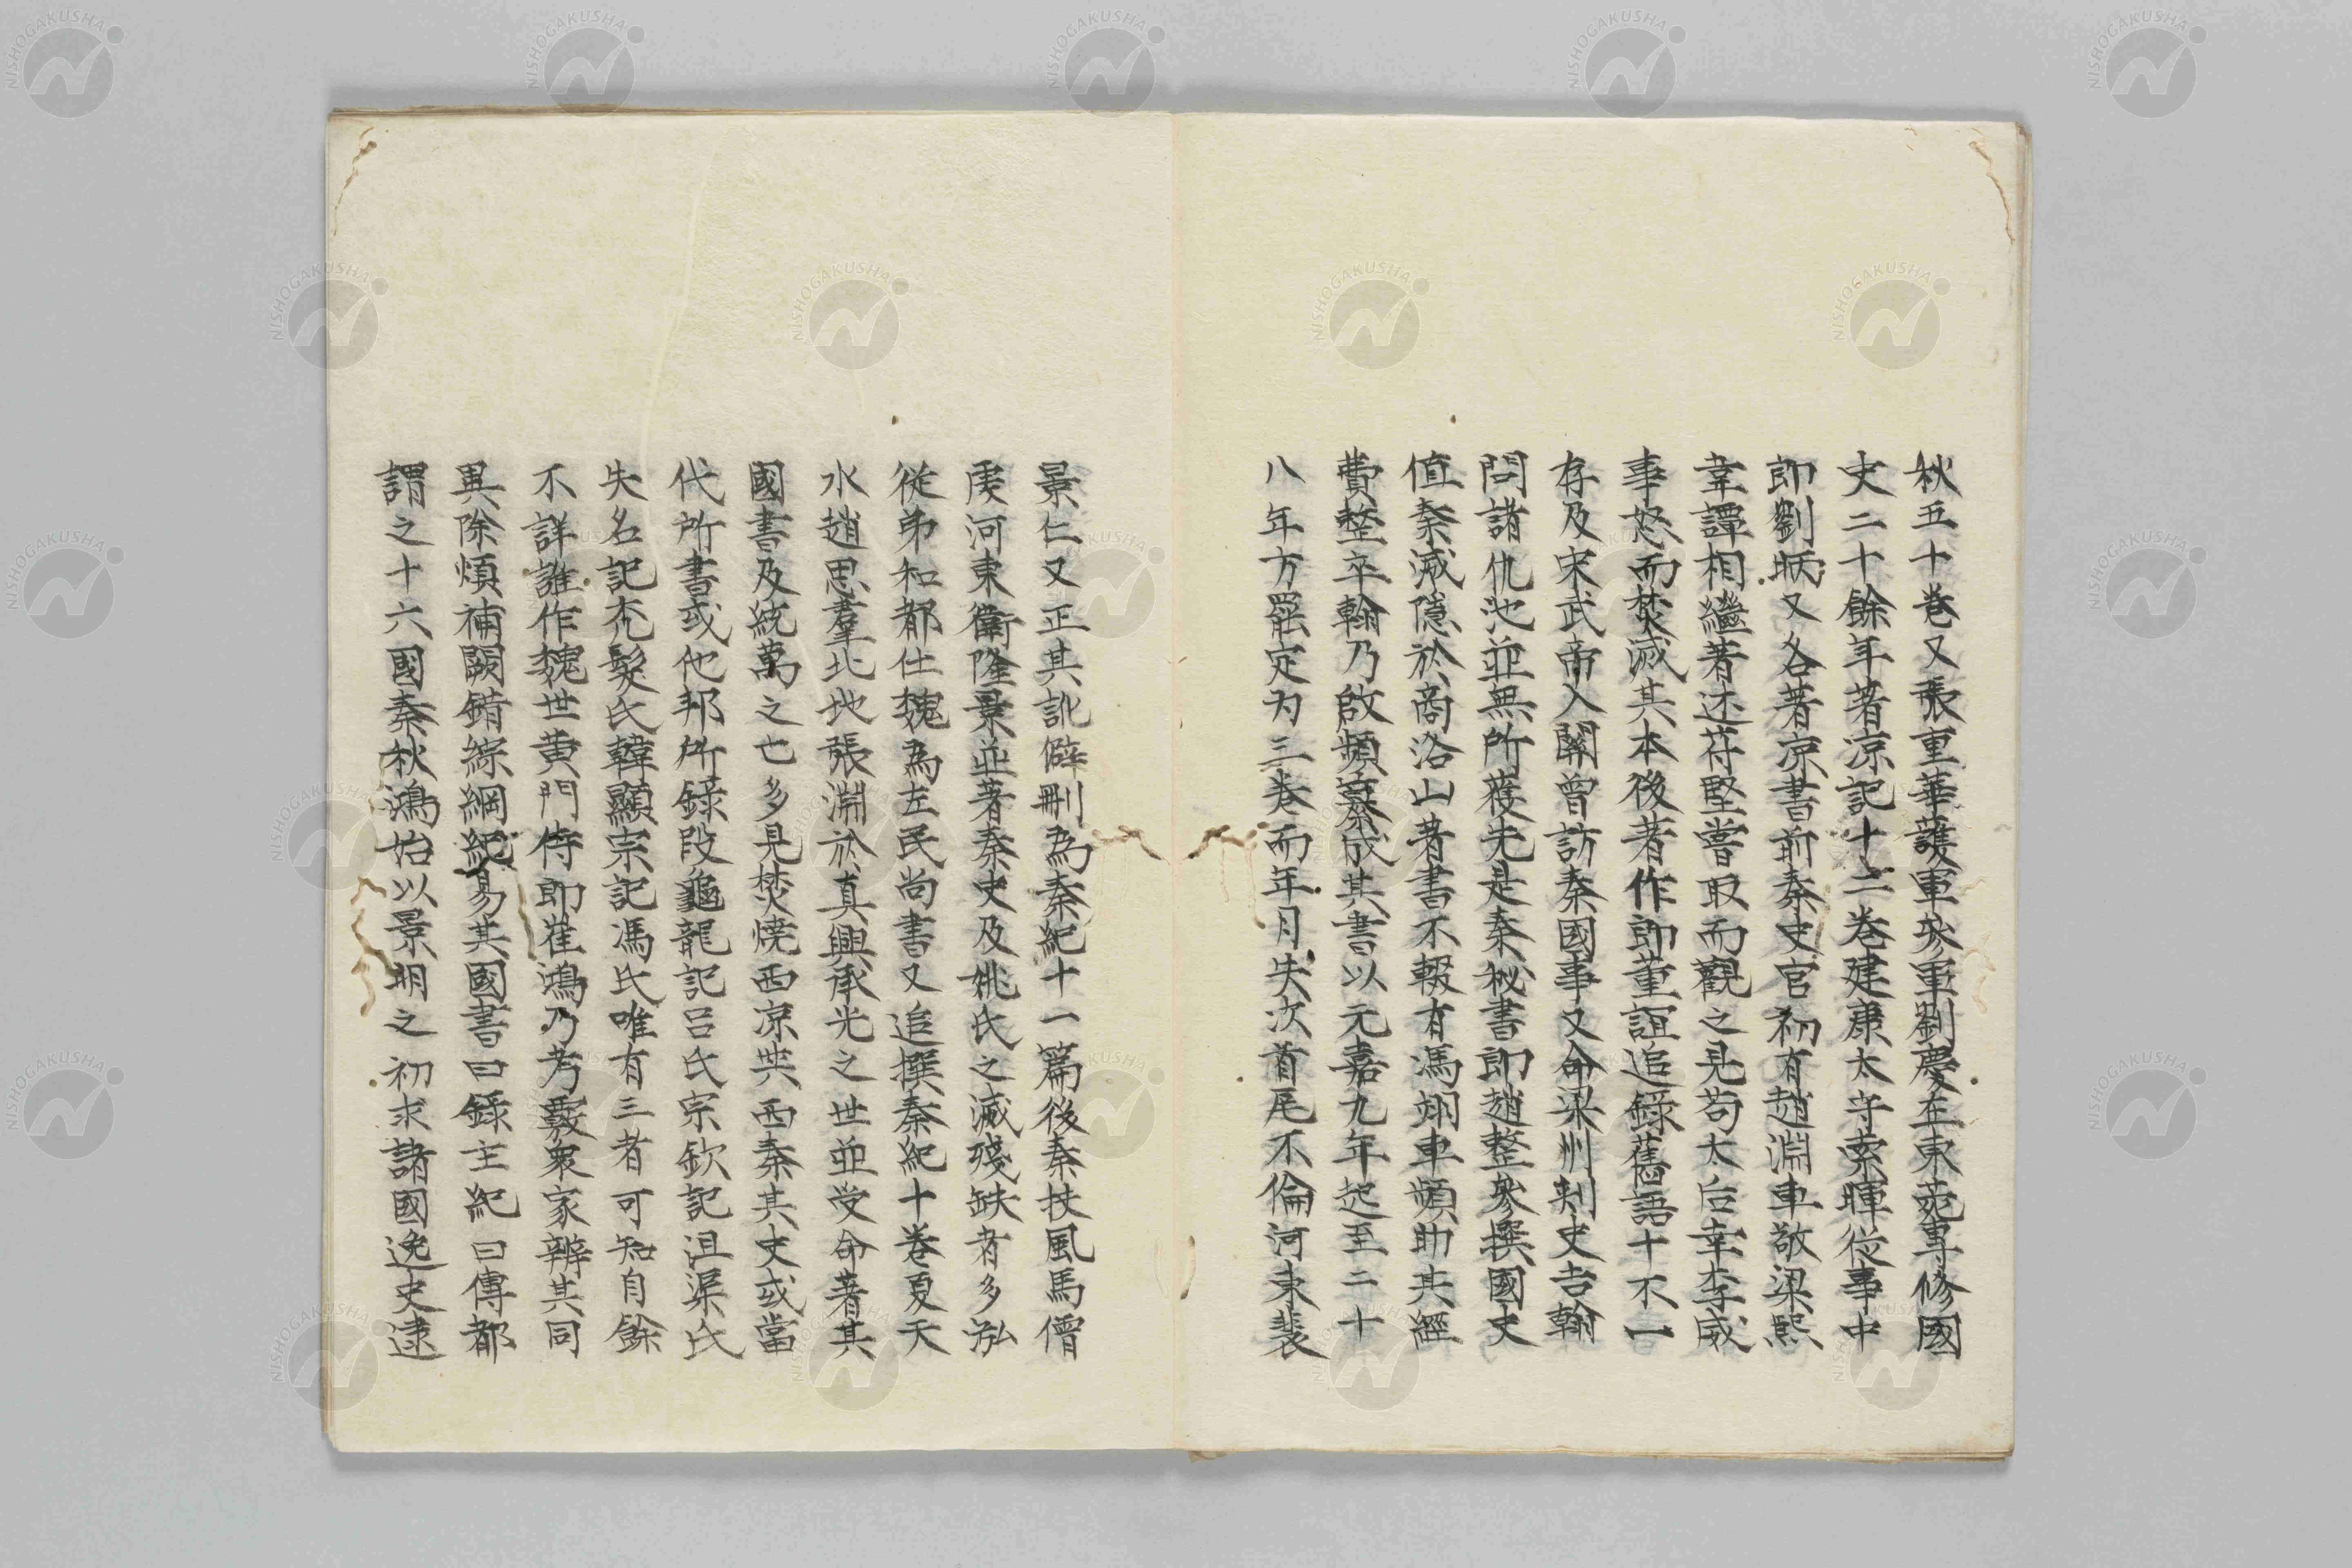 秋五十巻又張重華護軍叅軍劉慶在東菀專修國
史二十餘年著凉記十二巻建康太守索暉從事中
郎劉昞又各著凉書前秦史官初有趙淵車敬梁熙
韋譚相繼著述苻堅嘗取而觀之見苟太后幸李威
事怒而焚滅其本後著作郎董誼追録舊語十不一
存及宋武帝入關曾訪秦國事又命梁州刺史吉翰
問諸仇池並無所獲先是秦秘書郎趙整參撰國史
值秦滅隱於商洛山著書不輟有馮翊車頻助其經
費整卒翰乃啟頻纂成其書以元嘉九年起至二十
八年方罷定为三巻而年月失次首尾不倫河東裴
景仁又正其訛僻刪為秦紀十一篇後秦扶風馬僧
虔河東衛隆景並著秦史及姚氏之滅殘缺者多泓
從弟和都仕魏為左民尚書又追撰秦紀十巻夏天
水趙思羣北地張淵於真興承光之世並受命著其
國書及統萬之亡多見焚燒西凉與西秦其史或當
代所書或他邦所錄段龜龍記呂氏宗欽記沮渠氏
失名記禿髮氏韓顯宗記馮氏唯有三者可知自餘
不詳誰作魏世黄門侍郎崔鴻乃考覈衆家辨其同
異除煩補闕錯綜綱紀易其國書曰錄主紀曰傳都
謂之十六國秦秋鴻始以景明之初求諸國逸史逮
NISHOGAKUSHA